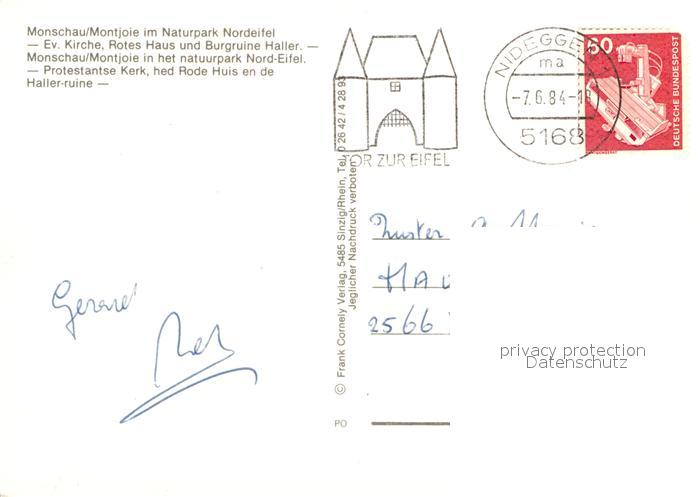 Monschau/Montjoie im Naturpark Nordeifel
— Ev. Kirche, Rotes Haus und Burgruine Haller. —
Monschau/Montjoie in het natuurpark Nord-Eifel.
— Protestantse Kerk, hed Rode Huis en de
Haller-ruine —
TOR ZUR EIFEL
NIDEGGEN
ma
-7.6.84-18
5168
60
DEUTSCHE BUNDESPOST
© Frank Cornely Verlag, 5485 Sinzig/Rhein, Tel. 0 26 42 / 4 28 93
Jeglicher Nachdruck verboten
Zuster
2566
Gerard
privacy protection
Datenschutz
PO